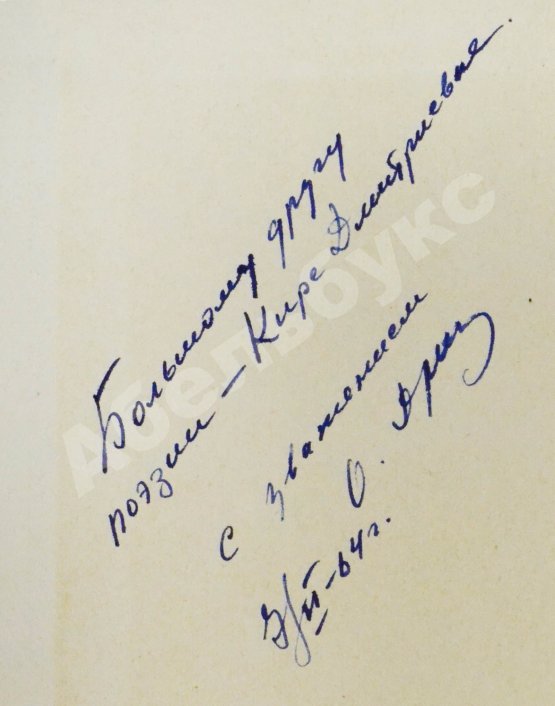 Большому другу
поэзии – Кире Дмитриевне.
с уважением
О.
7/II-64г.
Абельбукс